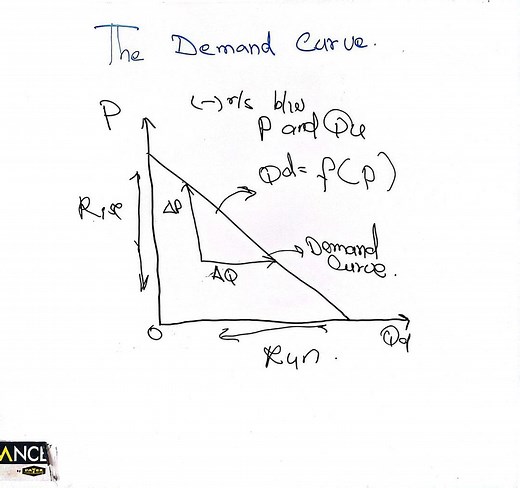 The Demand Curve.
P
(-) r/s b/w
P and Qd
Qd = f(P)
Rise
ΔP
ΔQ
Demand
Curve.
O
Qd
Run.
ANCE